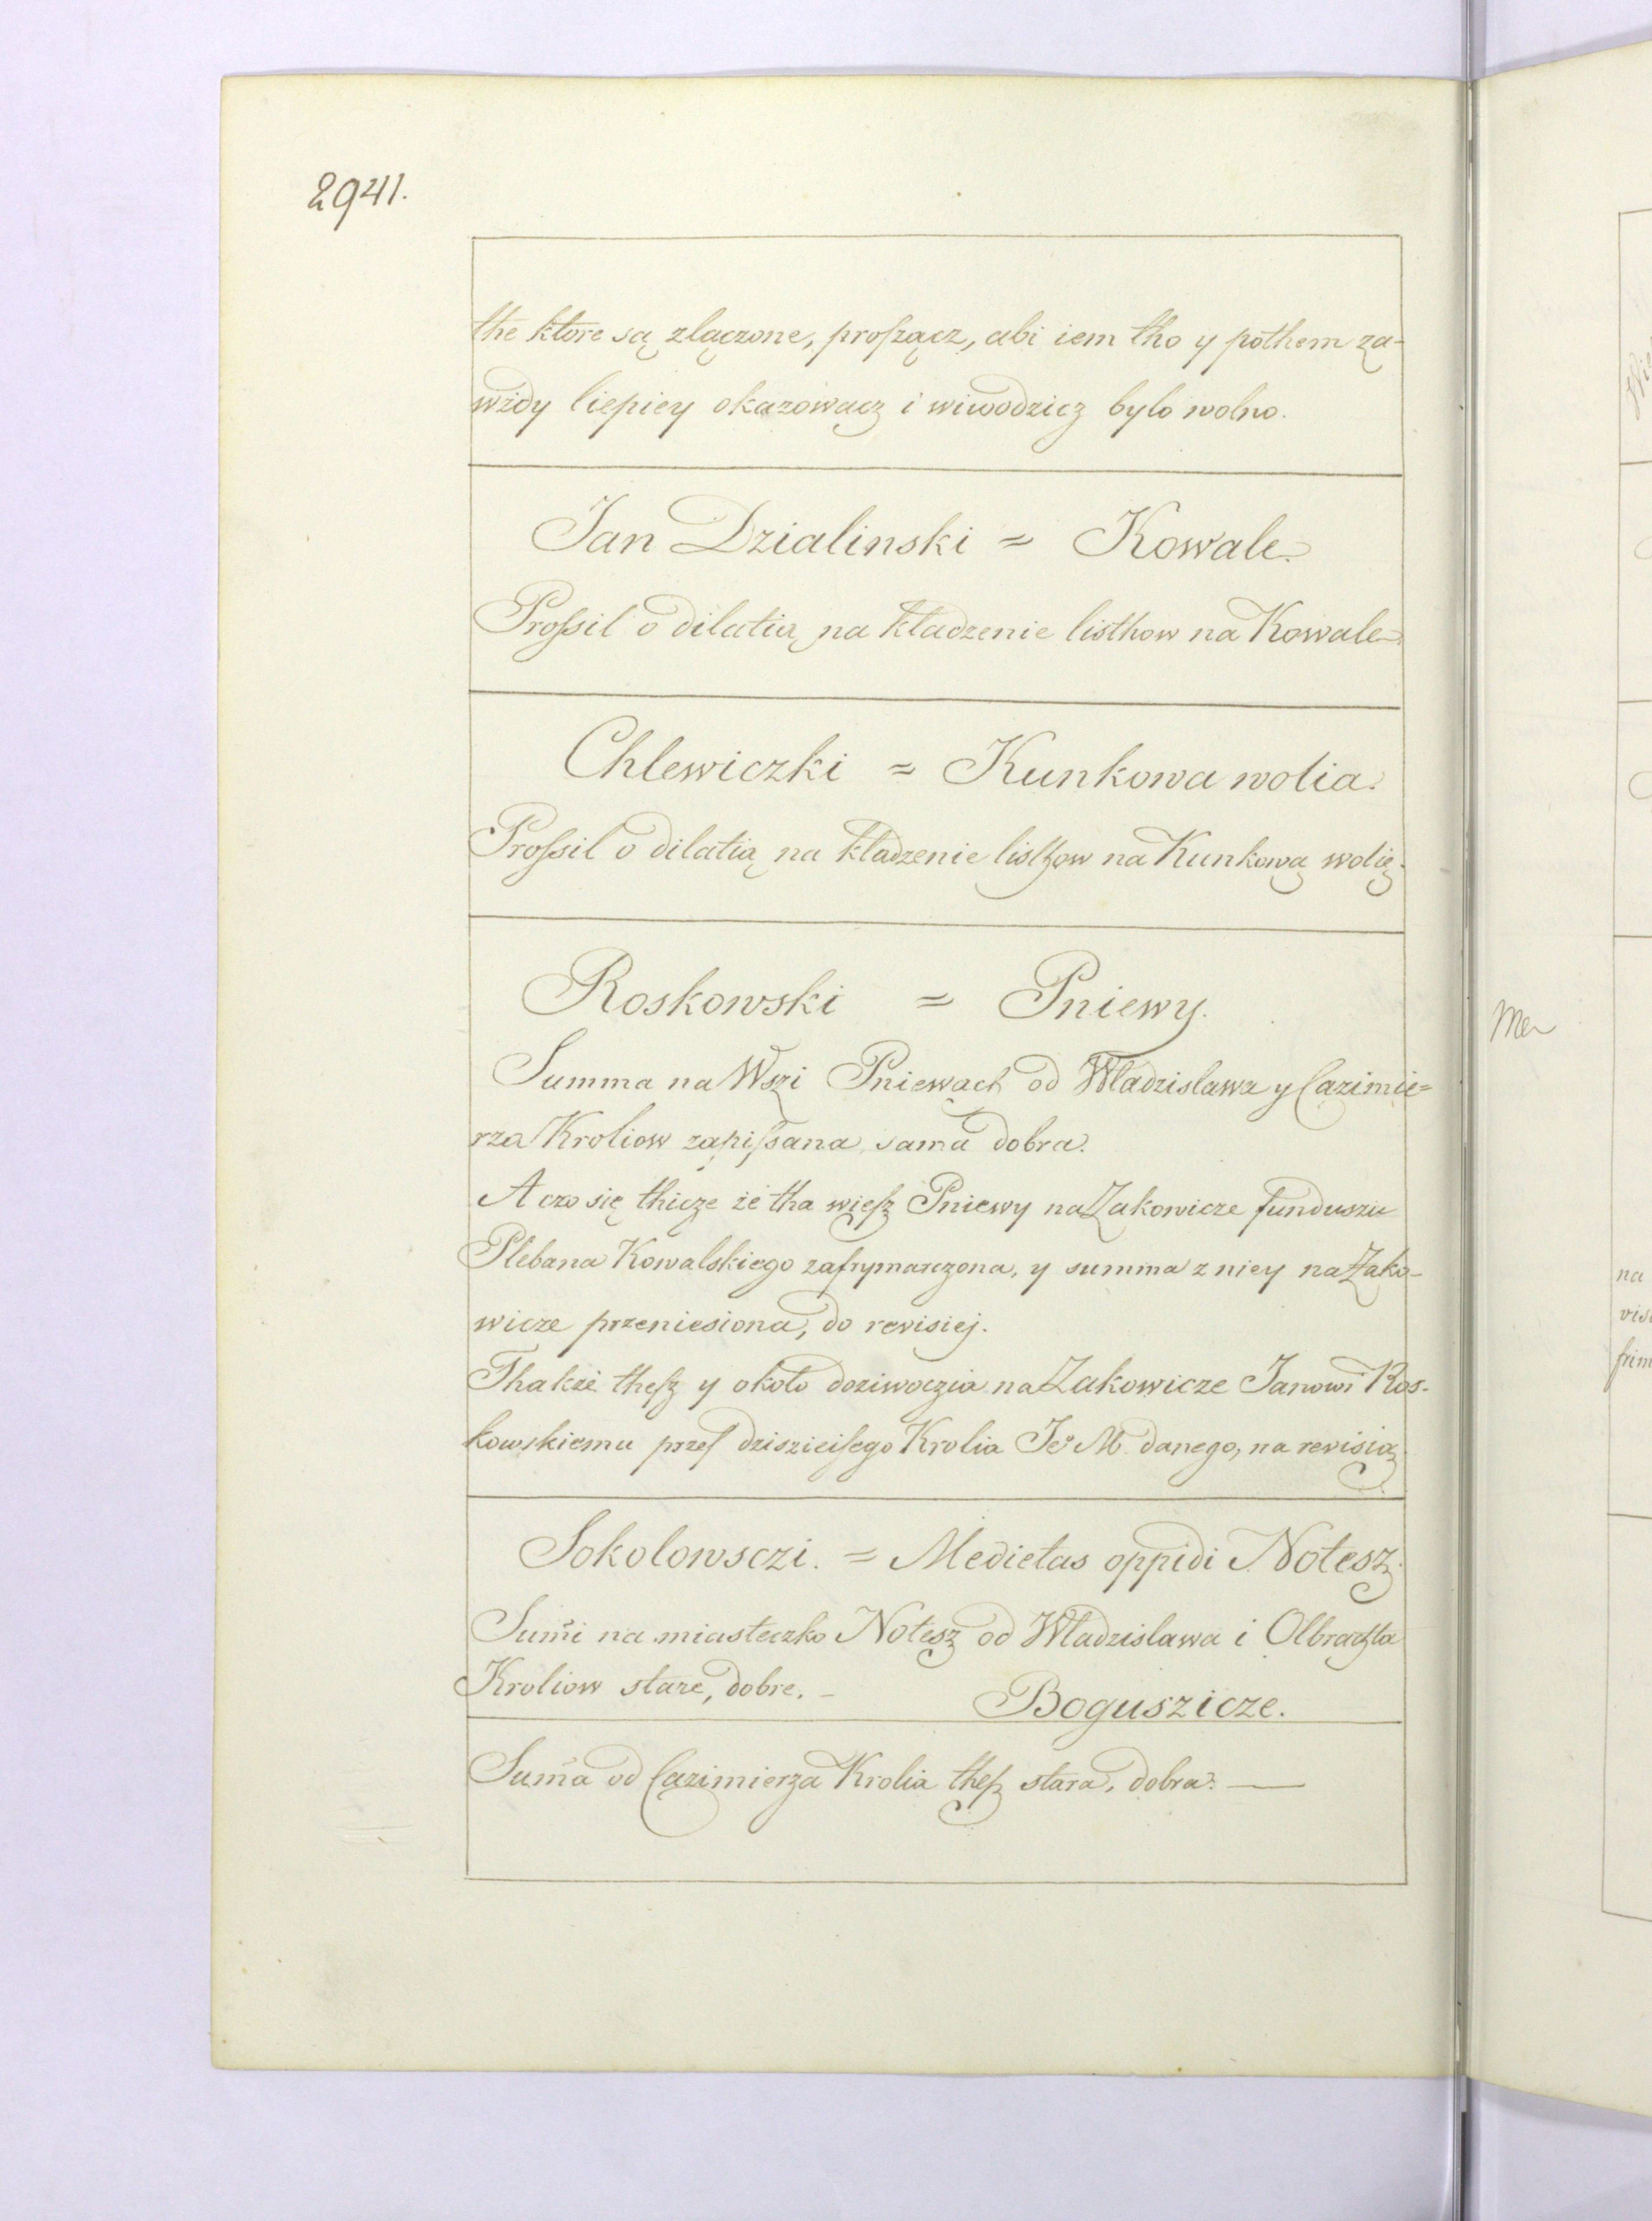 2941.
the ktore są zlączone, proszącz, abi iem tho y pothem za-
wżdy liepiey okazowacz i wiwodzicz bylo wolno.
Jan Dzialinski = Kowale.
Prossil o dilatią na kladzenie listhow na Kowale
Chlewiczki = Kunkowa wolia.
Prossil o dilatią na kladzenie listhow na Kunkową wolię.
Roskowski = Pniewy.
Summa na Wszi Pniewach od Wladzislawa y Cazimie=
rza Kroliow zapissana sama dobra.
A czo się thicze że tha wiesz Pniewy na Zakowicze funduszu
Plebana Kowalskiego zafrymarczona, y summa z niey na Zako-
wicze przeniesiona, do revisiej.
Thakże thesz y około doziwoczia na Zakowicze Janowi Ros-
kowskiemu przes dzisieisego Krolia Je° M. danego, na revisią
Sokolowsczi. = Medietas oppidi Notesz.
Sum̃i na miasteczko Notesz od Wladzislawa i Olbrachta
Kroliow stare, dobre. –
Boguszicze.
Sum̃a od Cazimierza Krolia thesz stara, dobra. —
Men
na
frim